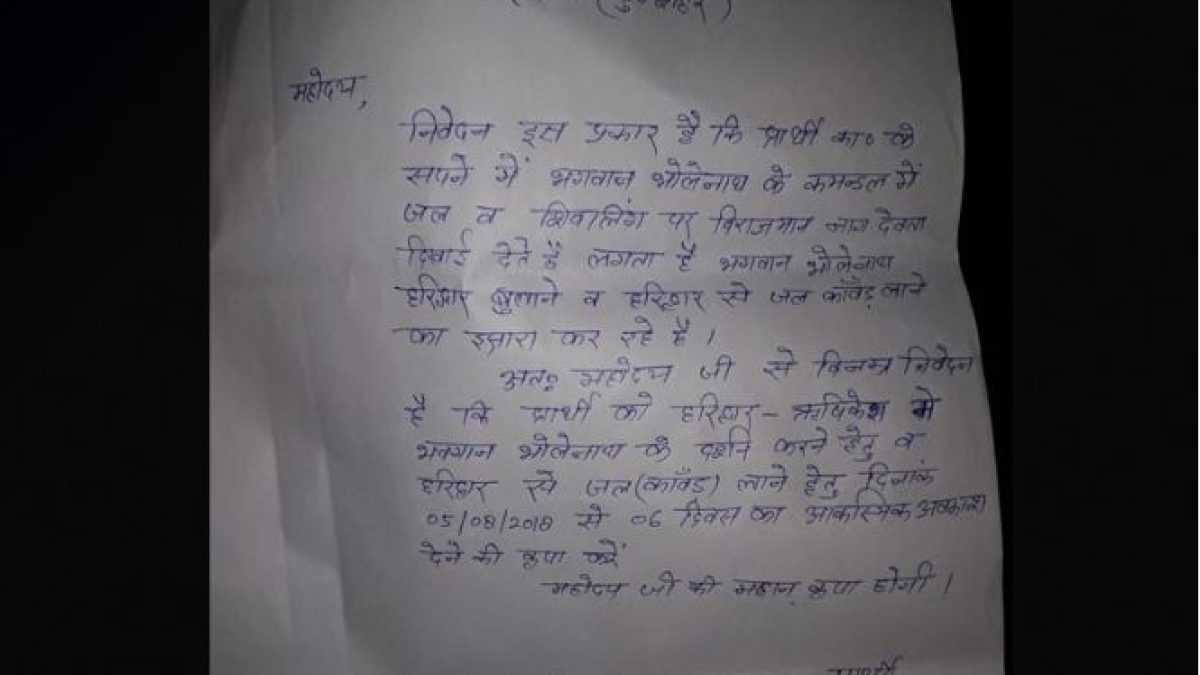 महोदय,
निवेदन इस प्रकार है कि प्रार्थी का० के
सपने में भगवान भोलेनाथ के कमन्डल में
जल व शिवलिंग पर विराजमान नाग देवता
दिखाई देते है लगता है भगवान भोलेनाथ
हरिद्वार बुलाने व हरिद्वार से जल काँवड़ लाने
का इशारा कर रहे है।
अतः महोदय जी से विनम्र निवेदन
है कि प्रार्थी को हरिद्वार - ऋषिकेश मे
भगवान भोलेनाथ के दर्शन करने हेतु व
हरिद्वार से जल (काँवड़) लाने हेतु दिनांक
05/08/2018 से 06 दिवस का आकस्मिक अवकाश
देने की कृपा करें
महोदय जी की महान कृपा होगी।